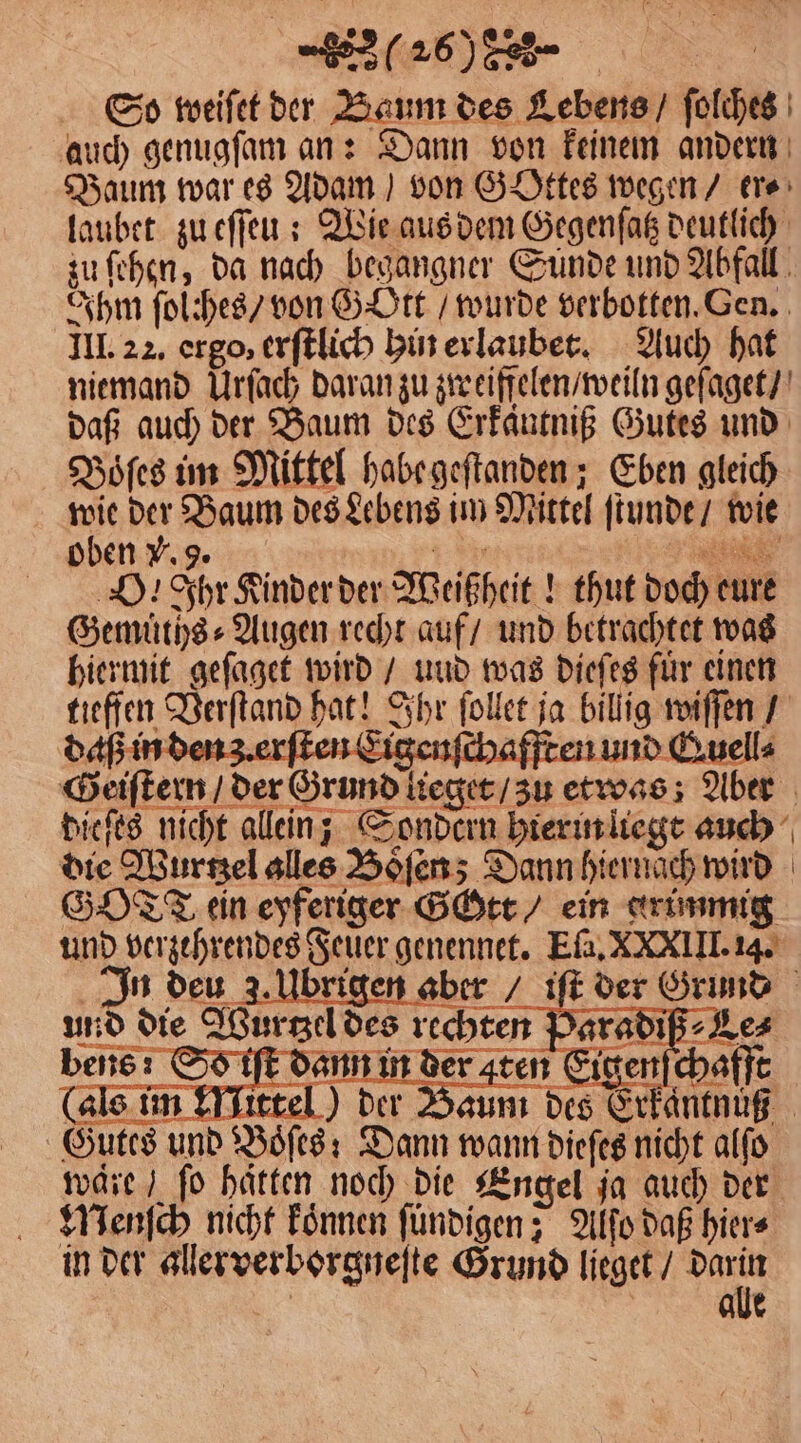 (26)
So weiſet der Baum des Lebens / ſolches
auch genugſam an: Dann von keinem andern
Baum war es Adam / von GOttes wegen / er⸗
laubet zu eſſeu: Wie aus dem Gegenſatz deutlich
zu ſehen, da nach begangner Sünde und Abfall
Ihm ſolches / von GOtt / wurde verbotten. Gen.
III. 22. ergo, erſtlich hin erlaubet. Auch hat
niemand Urſach daran zu zweiffelen / weiln geſaget /
daß auch der Baum des Erkäutniß Gutes und
Böſes im Mittel habe geſtanden; Eben gleich
wie der Baum des Lebens im Mittel ſtunde / wie
oben v. 9.
O! Ihr Kinder der Weißheit! thut doch eure
Gemüths⸗Augen recht auf / und betrachtet was
hiermit geſaget wird / uud was dieſes für einen
tieffen Verſtand hat! Ihr ſollet ja billig wiſſen /
daß in den 3. erſten Eigenſchafften und Quell⸗
Geiſtern / der Grund lieget / zu etwas; Aber
dieſes nicht allein; Sondern hierin liegt auch
die Wurtzel alles Böſen; Dann hiernach wird
GOTT ein eyferiger GOtt / ein grimmig
und verzehrendes Feuer genennet. Eſa. XXXIII. 14.
In deu 3. Ubrigen aber / iſt der Grund
und die Wurtzel des rechten Paradiß⸗Le⸗
bens: So iſt dann in der 4ten Eigenſchafft
(als im Mittel) der Baum des Erkäntnüß
Gutes und Böſes: Dann wann dieſes nicht alſo
wäre / ſo hätten noch die Engel ja auch der
Menſch nicht können ſündigen; Alſo daß hier⸗
in der allerverborgneſte Grund lieget / darin
alle